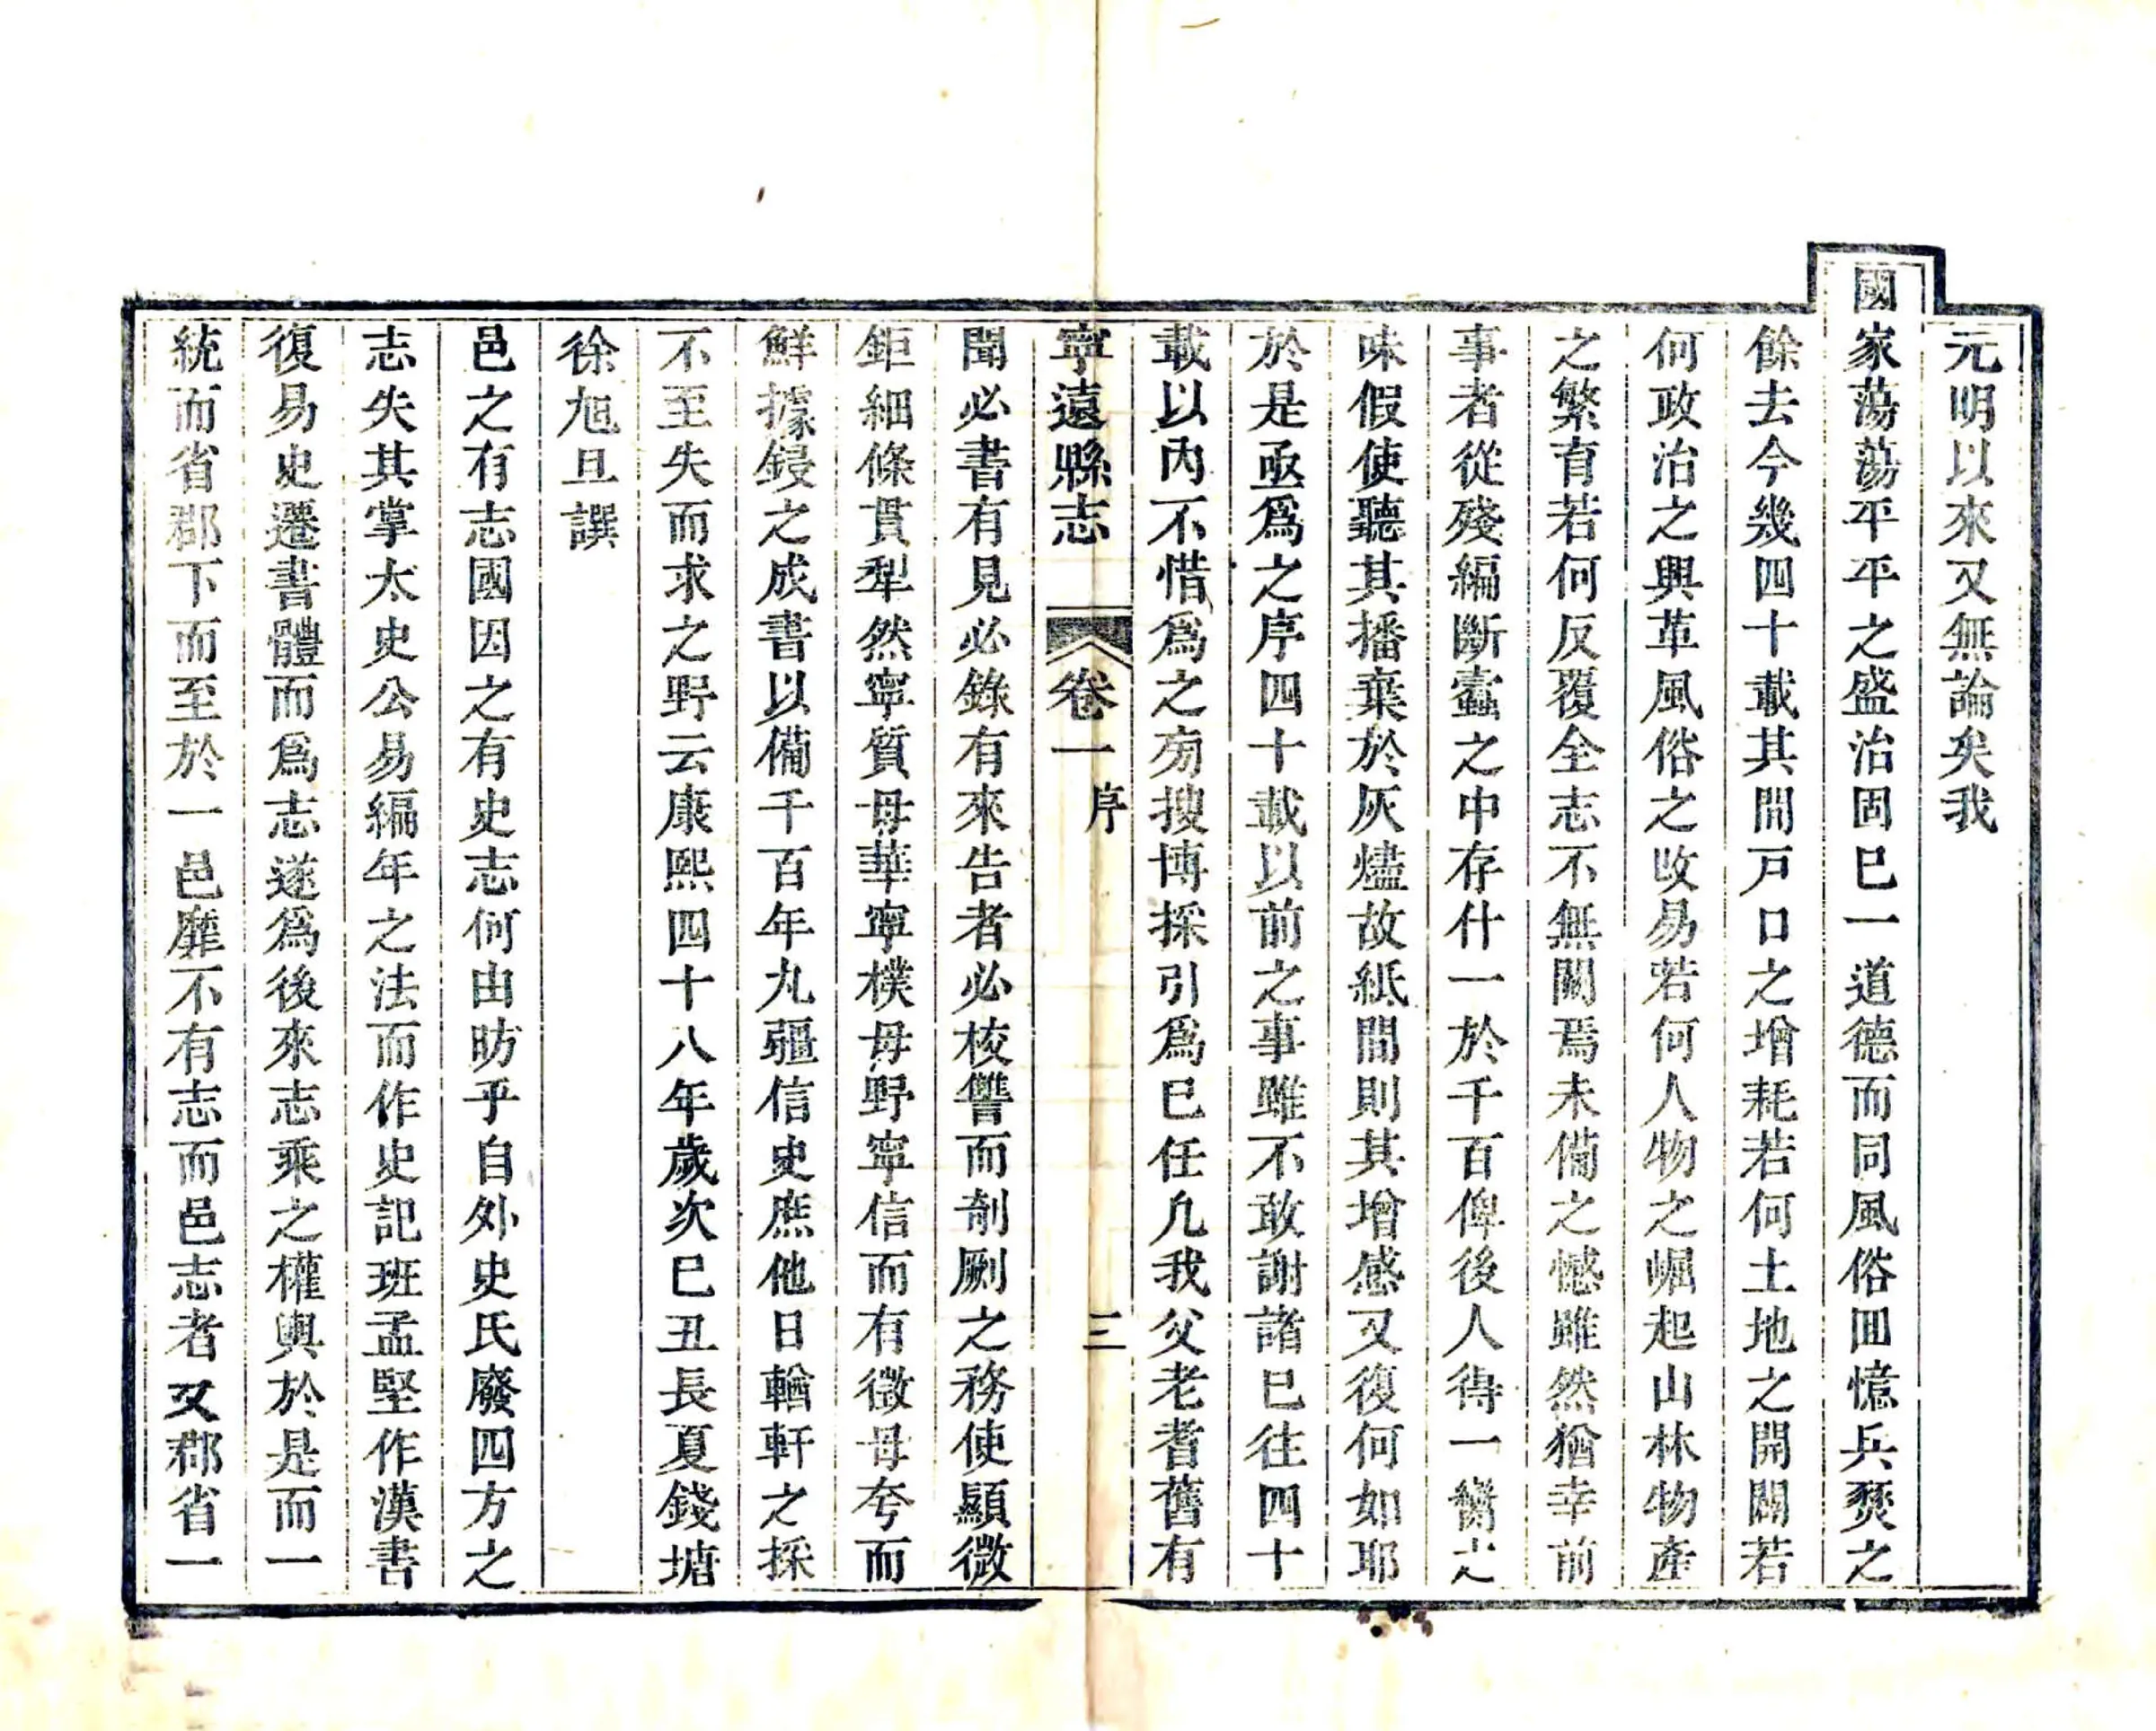 元明以來又無論矣我
國家蕩蕩平平之盛治固已一道德而同風俗回憶兵燹之
餘去今幾四十載其間戸口之增耗若何土地之開闢若
何政治之興革風俗之改易若何人物之崛起山林物產
之繁育若何反覆全志不無闕焉未備之憾雖然猶幸前
事者從殘編斷蠹之中存什一於千百俾後人得一臠之
味假使聽其播棄於灰燼故紙間則其增感又復何如耶
於是亟爲之序四十載以前之事雖不敢謝諸已往四十
載以內不惜爲之旁搜博採引爲已任凡我父老耆舊有
寧遠縣志 卷一 序 三
聞必書有見必錄有來告者必核讐而剞劂之務使顯微
鉅細條貫犁然寧質毋華寧樸毋野寧信而有徵毋夸而
鮮據鋟之成書以備千百年丸疆信史庶他日輶軒之採
不至失而求之野云康熙四十八年歲次巳丑長夏錢塘
徐旭旦譔
邑之有志國因之有史志何由昉乎自外史氏廢四方之
志失其掌太史公易編年之法而作史記班孟堅作漢書
復易史遷書體而爲志遂爲後來志乘之權輿於是而一
統而省郡下而至於一邑靡不有志而邑志者又郡省一